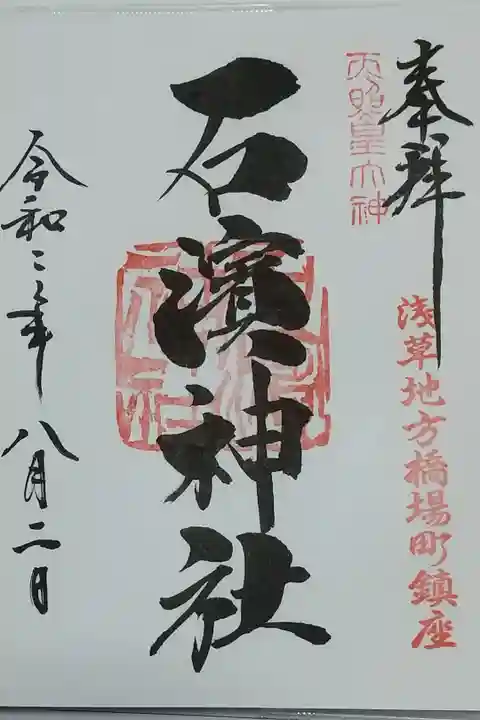 奉拝
天照皇大神
浅草地方橋場町鎮座
石濱神社
令和二年八月二日